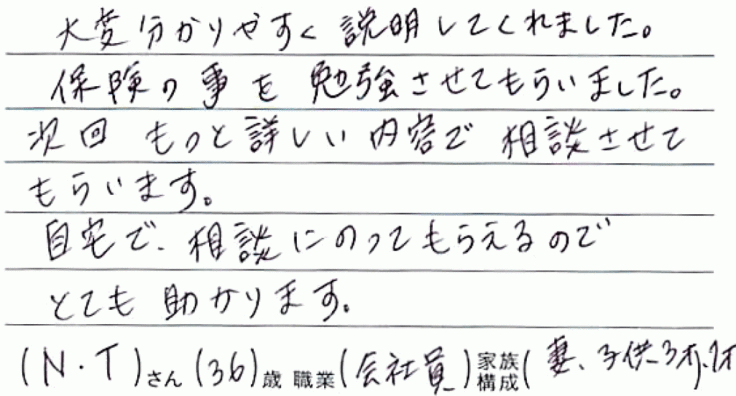 大変分かりやすく説明してくれました。
保険の事を勉強させてもらいました。
次回もっと詳しい内容で相談させて
もらいます。
自宅で、相談にのってもらえるので
とても助かります。
(N・T)さん(36)歳 職業(会社員)家族構成(妻、子供3才、1才